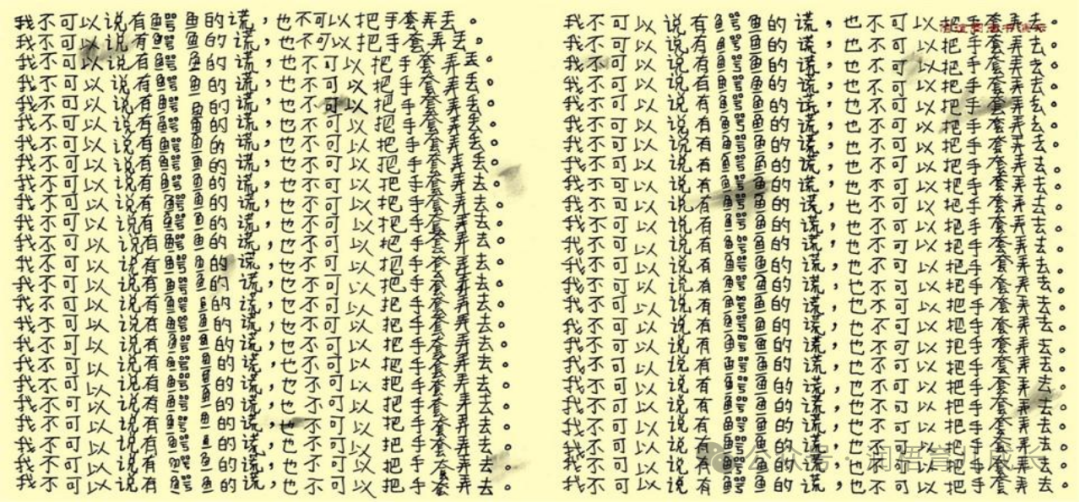 我不可以说有鳄鱼的谎，也不可以把手套弄丢。
我不可以说有鳄鱼的谎，也不可以把手套弄丢。
我不可以说有鳄鱼的谎，也不可以把手套弄丢。
我不可以说有鳄鱼的谎，也不可以把手套弄丢。
我不可以说有鳄鱼的谎，也不可以把手套弄丢。
我不可以说有鳄鱼的谎，也不可以把手套弄丢。
我不可以说有鳄鱼的谎，也不可以把手套弄丢。
我不可以说有鳄鱼的谎，也不可以把手套弄去。
我不可以说有鳄鱼的谎，也不可以把手套弄去。
我不可以说有鳄鱼的谎，也不可以把手套弄去。
我不可以说有鳄鱼的谎，也不可以把手套弄去。
我不可以说有鳄鱼的谎，也不可以把手套弄去。
我不可以说有鳄鱼的谎，也不可以把手套弄去。
我不可以说有鳄鱼的谎，也不可以把手套弄去。
我不可以说有鳄鱼的谎，也不可以把手套弄去。
我不可以说有鳄鱼的谎，也不可以把手套弄去。
我不可以说有鳄鱼的谎，也不可以把手套弄去。
我不可以说有鳄鱼的谎，也不可以把手套弄去。
我不可以说有鳄鱼的谎，也不可以把手套弄去。
我不可以说有鳄鱼的谎，也不可以把手套弄去。
我不可以说有鳄鱼的谎，也不可以把手套弄去。
我不可以说有鳄鱼的谎，也不可以把手套弄去。
我不可以说有鳄鱼的谎，也不可以把手套弄去。
我不可以说有鳄鱼的谎，也不可以把手套弄去。
我不可以说有鳄鱼的谎，也不可以把手套弄去。
我不可以说有鳄鱼的谎，也不可以把手套弄去。
我不可以说有鳄鱼的谎，也不可以把手套弄去。
我不可以说有鳄鱼的谎，也不可以把手套弄去。
我不可以说有鳄鱼的谎，也不可以把手套弄去。
我不可以说有鳄鱼的谎，也不可以把手套弄去。
我不可以说有鳄鱼的谎，也不可以把手套弄去。
我不可以说有鳄鱼的谎，也不可以把手套弄去。
我不可以说有鳄鱼的谎，也不可以把手套弄去。
我不可以说有鳄鱼的谎，也不可以把手套弄去。
我不可以说有鳄鱼的谎，也不可以把手套弄去。
我不可以说有鳄鱼的谎，也不可以把手套弄去。
我不可以说有鳄鱼的谎，也不可以把手套弄去。
我不可以说有鳄鱼的谎，也不可以把手套弄去。
我不可以说有鳄鱼的谎，也不可以把手套弄去。
我不可以说有鳄鱼的谎，也不可以把手套弄去。
我不可以说有鳄鱼的谎，也不可以把手套弄去。
我不可以说有鳄鱼的谎，也不可以把手套弄去。
我不可以说有鳄鱼的谎，也不可以把手套弄去。
我不可以说有鳄鱼的谎，也不可以把手套弄去。
我不可以说有鳄鱼的谎，也不可以把手套弄去。
我不可以说有鳄鱼的谎，也不可以把手套弄去。
我不可以说有鳄鱼的谎，也不可以把手套弄去。
我不可以说有鳄鱼的谎，也不可以把手套弄去。
公众号